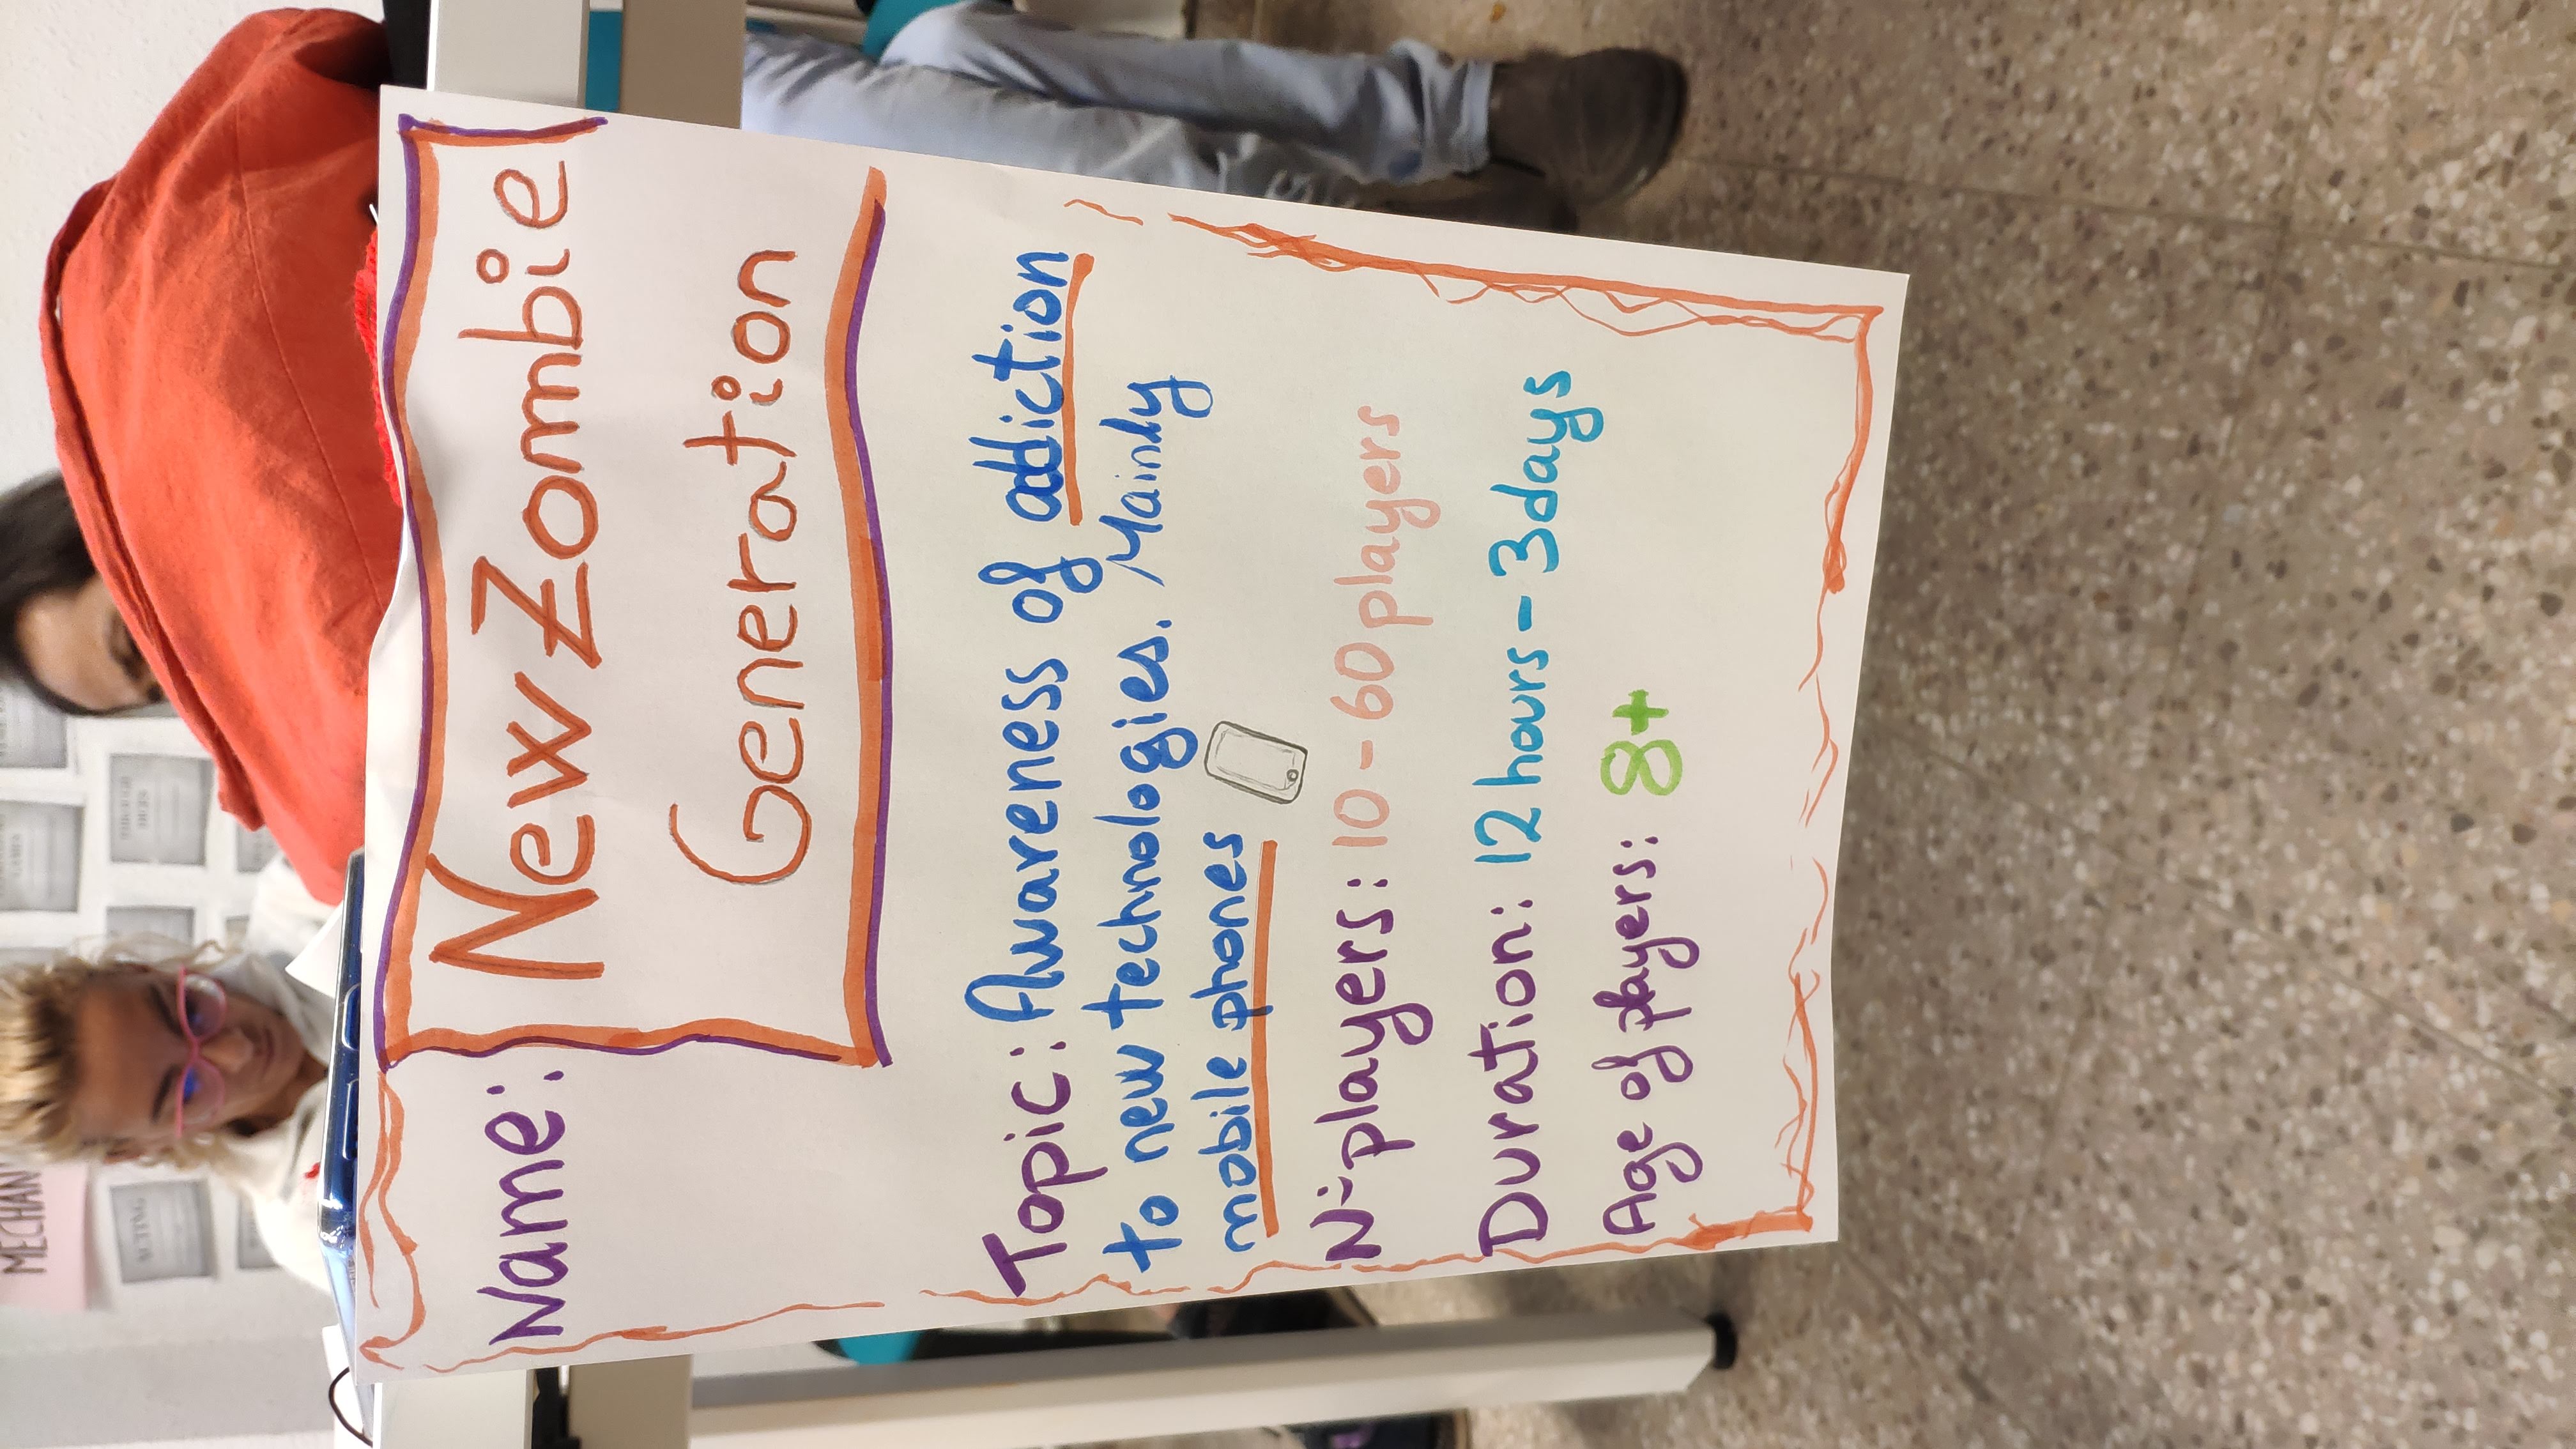 Name: New Zombie
Generation
Topic: Awareness of addiction
to new technologies. Mainly
mobile phones
Nº players: 10 - 60 players
Duration: 12 hours - 3 days
Age of players: 8+
MECHAN